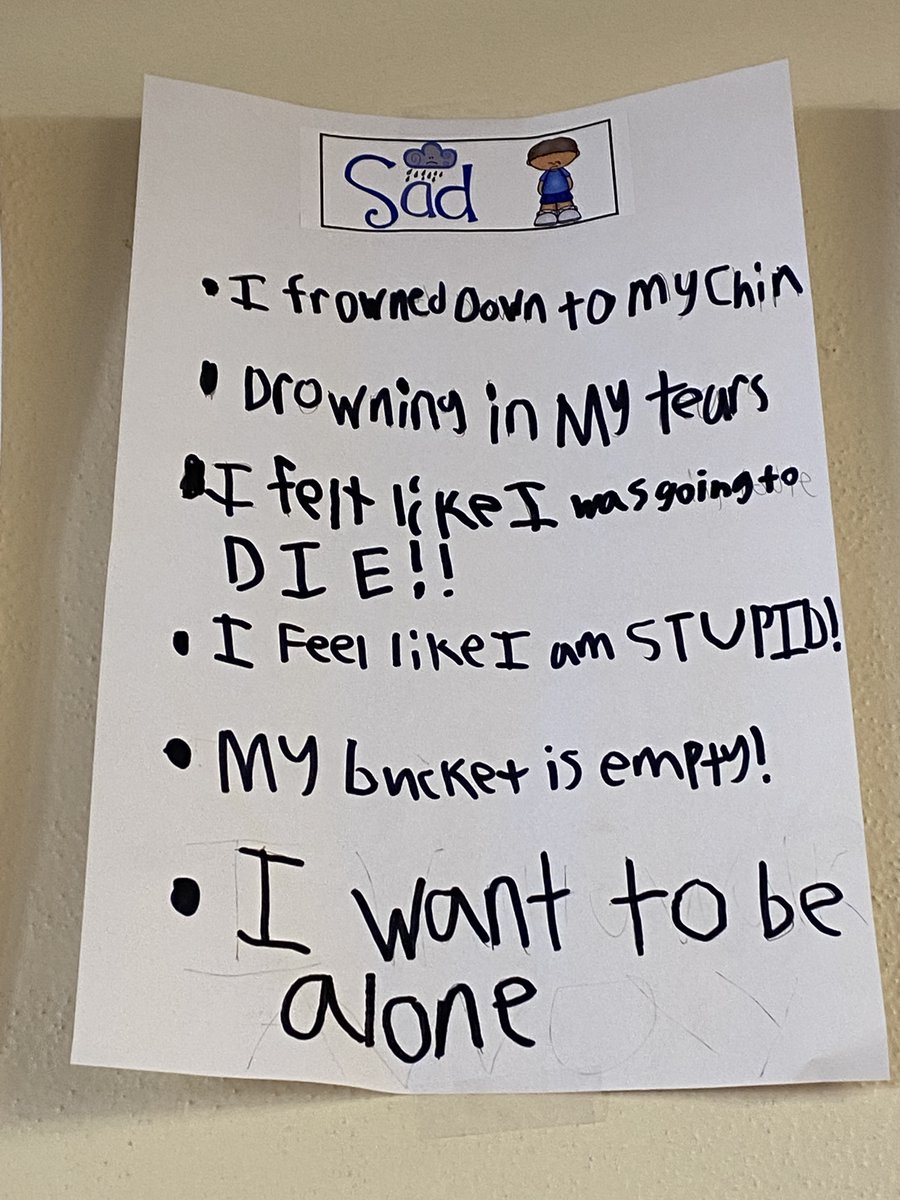 Sad
• I frowned Down to my Chin
• Drowning in My tears
• I felt like I was going to
DIE!!
• I Feel like I am STUPID!
• My bucket is empty!
• I want to be
alone